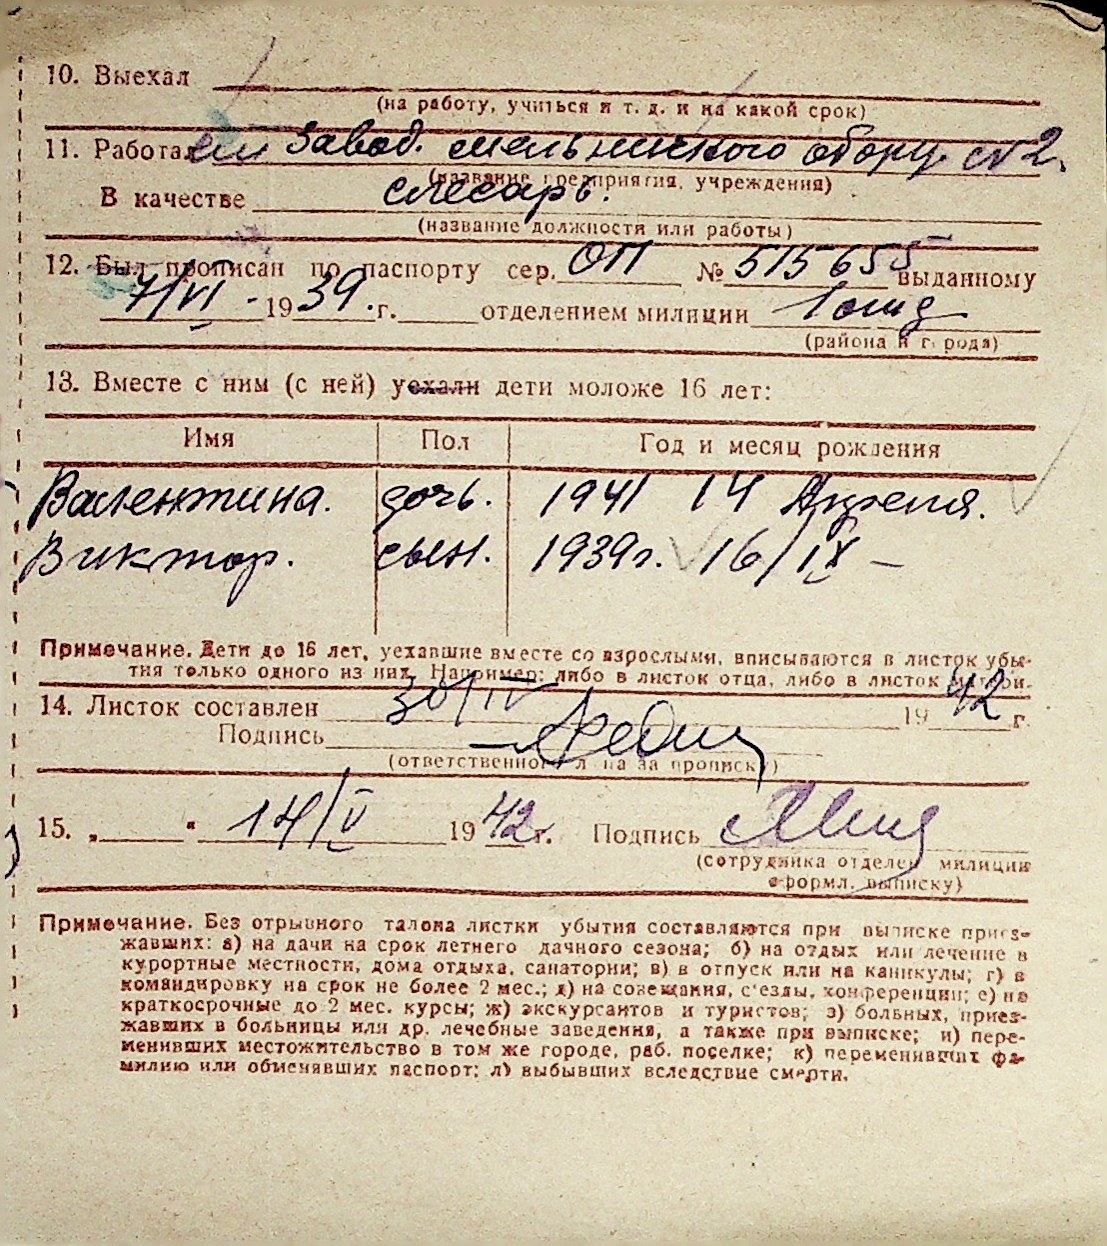 10. Выехал
(на работу, учиться и т. д. и на какой срок)
11. Работал Завод. мельничного обору. №2.
(название предприятия, учреждения)
В качестве слесарь.
(название должности или работы)
12. Был прописан по паспорту сер. ОП № 515655 выданному
7/VI - 1939. г. отделением милиции 1
(района и города)
13. Вместе с ним (с ней) уехали дети моложе 16 лет:
Имя Пол Год и месяц рождения
Валентина. дочь. 1941 14 Апреля.
Виктор. сын. 1939г. 16/IX -
Примечание. Дети до 16 лет, уехавшие вместе со взрослыми, вписываются в листок убы-
тия только одного из них. Например: либо в листок отца, либо в листок матери.
14. Листок составлен 30/IV 1942 г.
Подпись
(ответственного лица за прописку)
15. „ “ 14/V 1942г. Подпись
(сотрудника отделен. милиции
оформл. выписку)
Примечание. Без отрывного талона листки убытия составляются при выписке приез-
жавших: а) на дачи на срок летнего дачного сезона; б) на отдых или лечение в
курортные местности, дома отдыха, санатории; в) в отпуск или на каникулы; г) в
командировку на срок не более 2 мес.; д) на совещания, с'езды, конференции; е) на
краткосрочные до 2 мес. курсы; ж) экскурсантов и туристов; з) больных, приез-
жавших в больницы или др. лечебные заведения, а также при выписке; и) пере-
менивших местожительство в том же городе, раб. поселке; к) переменивших фа-
милию или обменявших паспорт; л) выбывших вследствие смерти.